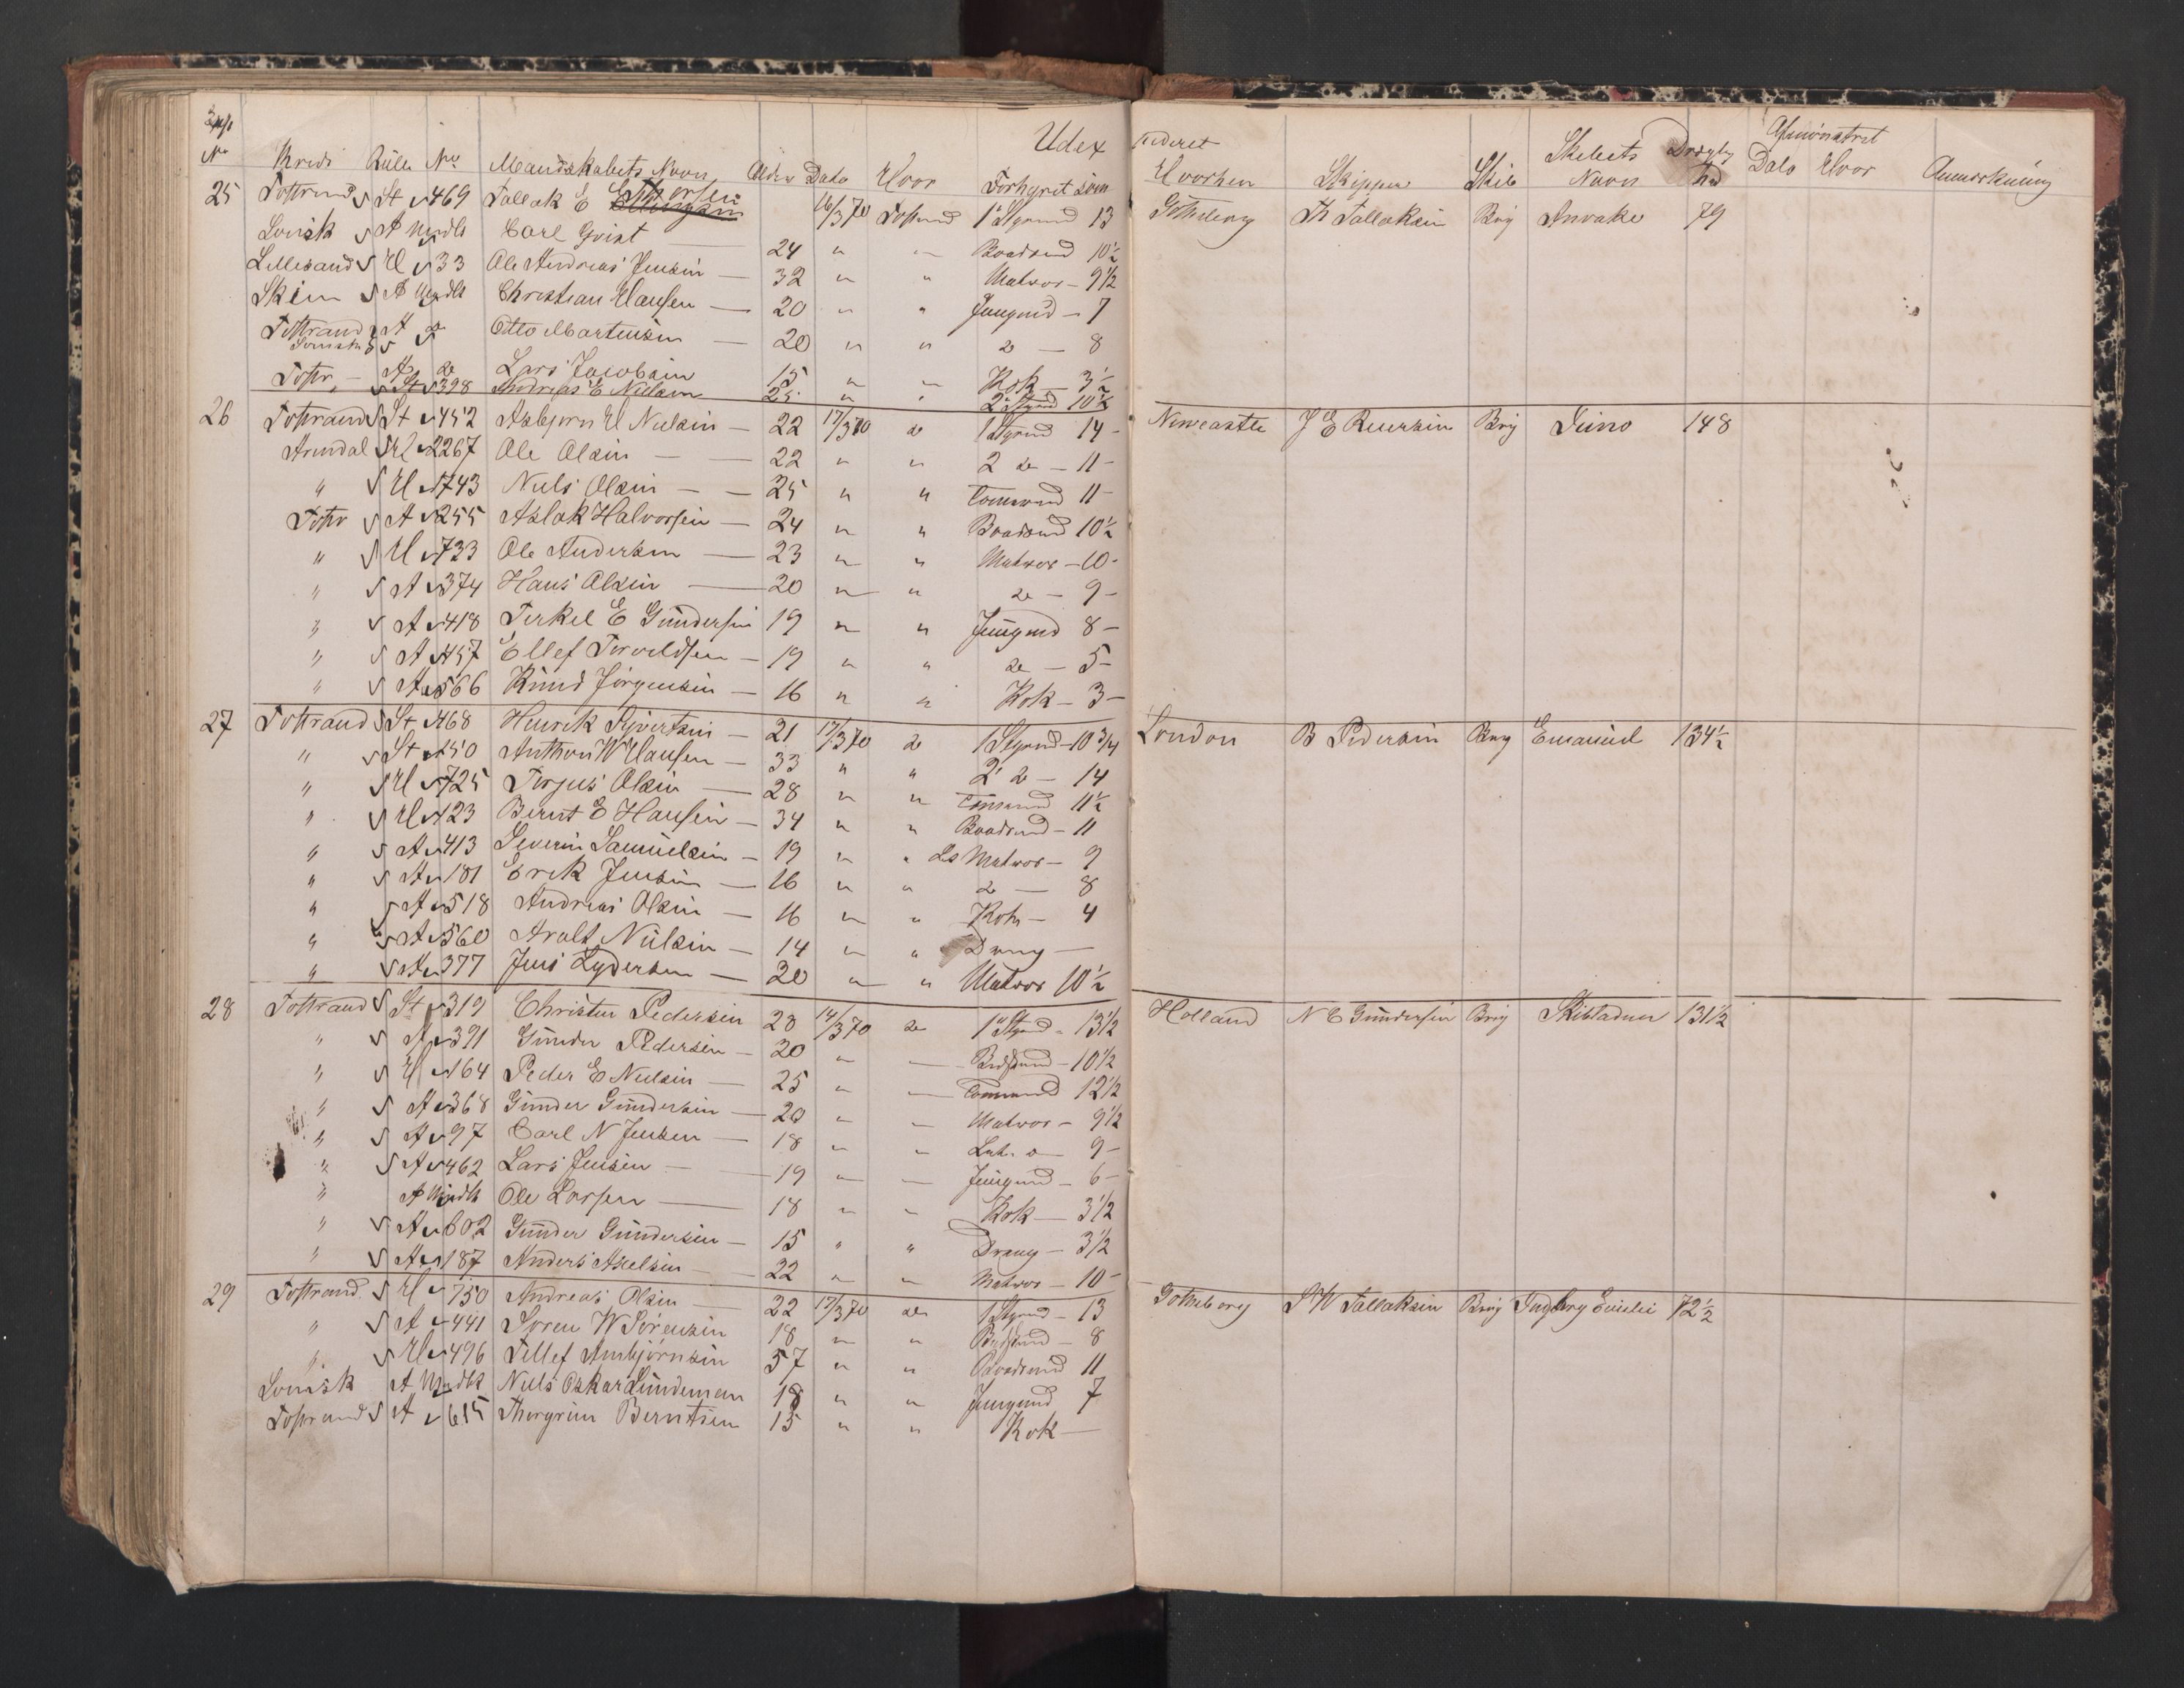 Expd No Kreds Rulle No Mandskabets Navn Alder Dato Hvor Forhyret som Udex pederet Hvorhen Skipper Skib Skibets Navn Drægtighed Afmønstret Dato Hvor Anmærkning
25 Tostrand St 469 Tallak E Thorsen 16/3 70 Tostrand 1 Styrmd 13 Gotheborg Th Tallaksen Brig Anvake 79
Svensk A Mndlt Carl Qvist 24 " — Baadsmd 10½
Lillesand H 33 Ole Andreas Jensen — 32 " " Matros — 9½
Skien A Mndlt Christian Hansen — 20 " " Jungmd — 7
Tostrand A do Otto Martensen — 20 " " do — 8
Svensk
Tostr — A do Lars Jacobsen 15 " — Kok — 3½
" St 398 Andreas E Nielsen 25 " " 2 Styrmd 10½
26 Tostrand St 452 Asbjørn H Nielsen — 22 17/3 70 do 1 Styrmd 14 — Newcastle J E Reiersen Brig Juno 148
Arendal H 2267 Ole Olsen — 22 " " 2 do — 11 —
" H 1743 Niels Olsen — 25 " " Tømmermd 11 —
Tostr A 255 Aslak Halvorsen — 24 " " Baadsmd 10½
" H 733 Ole Andersen — 23 " " Matros — 10 —
" A 374 Hans Olsen — 20 " " do — 9 —
" A 418 Terkel E Gundersen 19 " " Jungmd 8 —
" A 457 Ellef Torvaldsen — 19 " " do — 5 —
" A 566 Knud Jørgensen — 16 " " Kok — 3 —
27 Tostrand St 468 Henrik Syvertsen — 21 17/3 70 do 1 Styrmd — 10 3/4 London B Pedersen Brig Emanuel 134½
" St 150 Anthon W Hansen — 33 " " 2 do — 14
" H 725 Terjus Olsen — 28 " " Tømmermd 11½
" H 123 Bernt E Hansen — 34 " " Baadsmd — 11
" A 413 Severin Samuelsen — 19 " " Ls Matros — 9
" A 181 Erik Jensen — 16 " " do — 8
" A 518 Andreas Olsen — 16 " " Kok — 4
" A 560 Aralt Nielsen — 14 " " Dreng —
" A 377 Jens Lydersen — 20 " " Matros 10½
28 Tostrand St 319 Christen Pedersen 28 14/3 70 do 1 Styrmd — 13½ Holland N E Gundersen Brig Skibladner 131½
" A 391 Gunder Pedersen — 20 " — Bedstmd — 10½
" H 164 Peder E Nielsen — 25 " — Tømmermd 12½
" A 368 Gunder Gundersen — 20 " — Matros — 9½
" A 97 Carl N Jensen — 18 " — Let. o — 9 —
" A 462 Lars Jensen — 19 " — Jungmd — 6 —
" A Mndlt Ole Larsen — 18 " " Kok — 3½
" A 602 Gunder Gundersen — 15 " " Dreng — 3½
" A 187 Anders Axelsen — 22 " — Matros — 10 —
29 Tostrand H 750 Andreas Olsen — 22 17/3 70 do 1 Styrmd — 13 Gotheborg S W Tallaksen Brig Ingborg Emilie 72½
" A 441 Søren W Sørensen 18 " " Bedstmd — 8
" H 496 Tellef Anbjørnsen 57 " " Baadsmd 11
Svensk A Mndlt Niels Oskar Lundeman 18 " " Jungmd 7
Tostrand A 615 Thorgrim Berntsen 15 " " Kok —